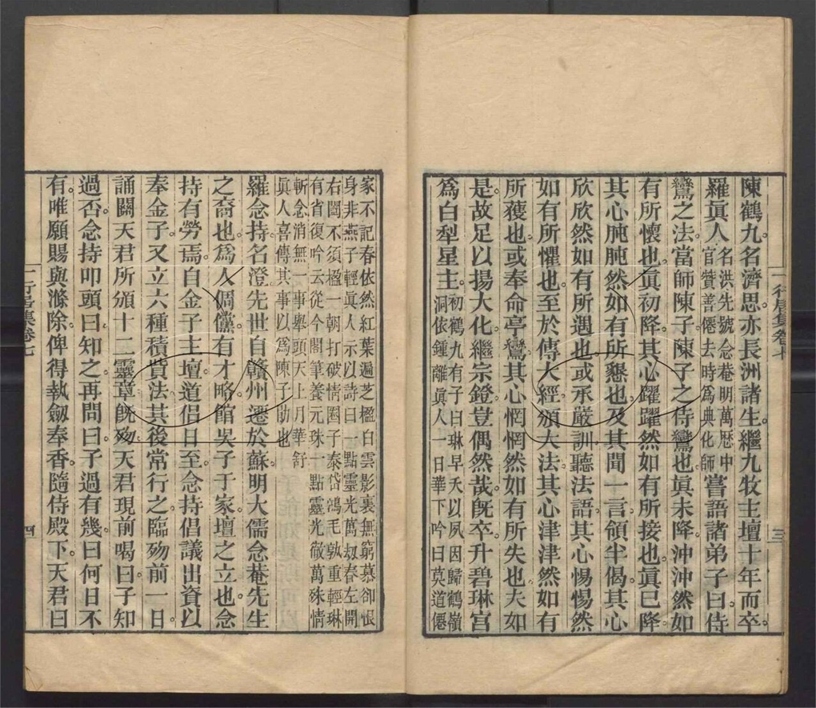 陳鶴九名濟思亦長洲諸生繼九牧主壇十年而卒
羅眞人名洪先號念菴明萬厯中官贊善僊去時爲典化師嘗語諸弟子曰侍
鸞之法當師陳子陳子之侍鸞也眞未降沖沖然如
有所懷也眞初降其心躍躍然如有所接也眞已降
其心肫肫然如有所懇也及其聞一言領半偈其心
欣欣然如有所遇也或承嚴訓聽法語其心惕惕然
如有所懼也至於傳大經頒大法其心津津然如有
所獲也或奉命亭鸞其心惘惘然如有所失也夫如
是故足以揚大化繼宗鐙豈偶然哉旣卒升碧琳宮
爲白犁星主初鶴九有子曰琳早夭以夙因歸鶴嶺洞依鍾離眞人一日華下吟曰莫道僊
一行居集卷七
三
家不記春依然紅葉遍芝楹白雲影裏無窮慕卻悵身非燕子輕眞人示以詩曰一點靈光萬劫春左開
右闔不須楹一朝打破情圈子泰岱鴻毛孰重輕琳有省復吟云從今閣筆養元珠一點靈光敵萬殊情
斬念消無一事舉頭天上月華舒眞人喜傳其事以爲陳子助也
羅念持名澄先世自贛州遷於蘇明大儒念菴先生
之裔也爲人倜儻有才略館吳子于家壇之立也念
持有勞焉自金子主壇道侶日至念持倡議出資以
奉金子又立六種積貲法其後常行之臨歿前一日
誦關天君所頒十二靈章旣歿天君現前喝曰子知
過否念持叩頭曰知之再問曰子過有幾曰何日不
有唯願賜與滌除俾得執劒奉香隨侍殿下天君曰
一行居集卷七
四